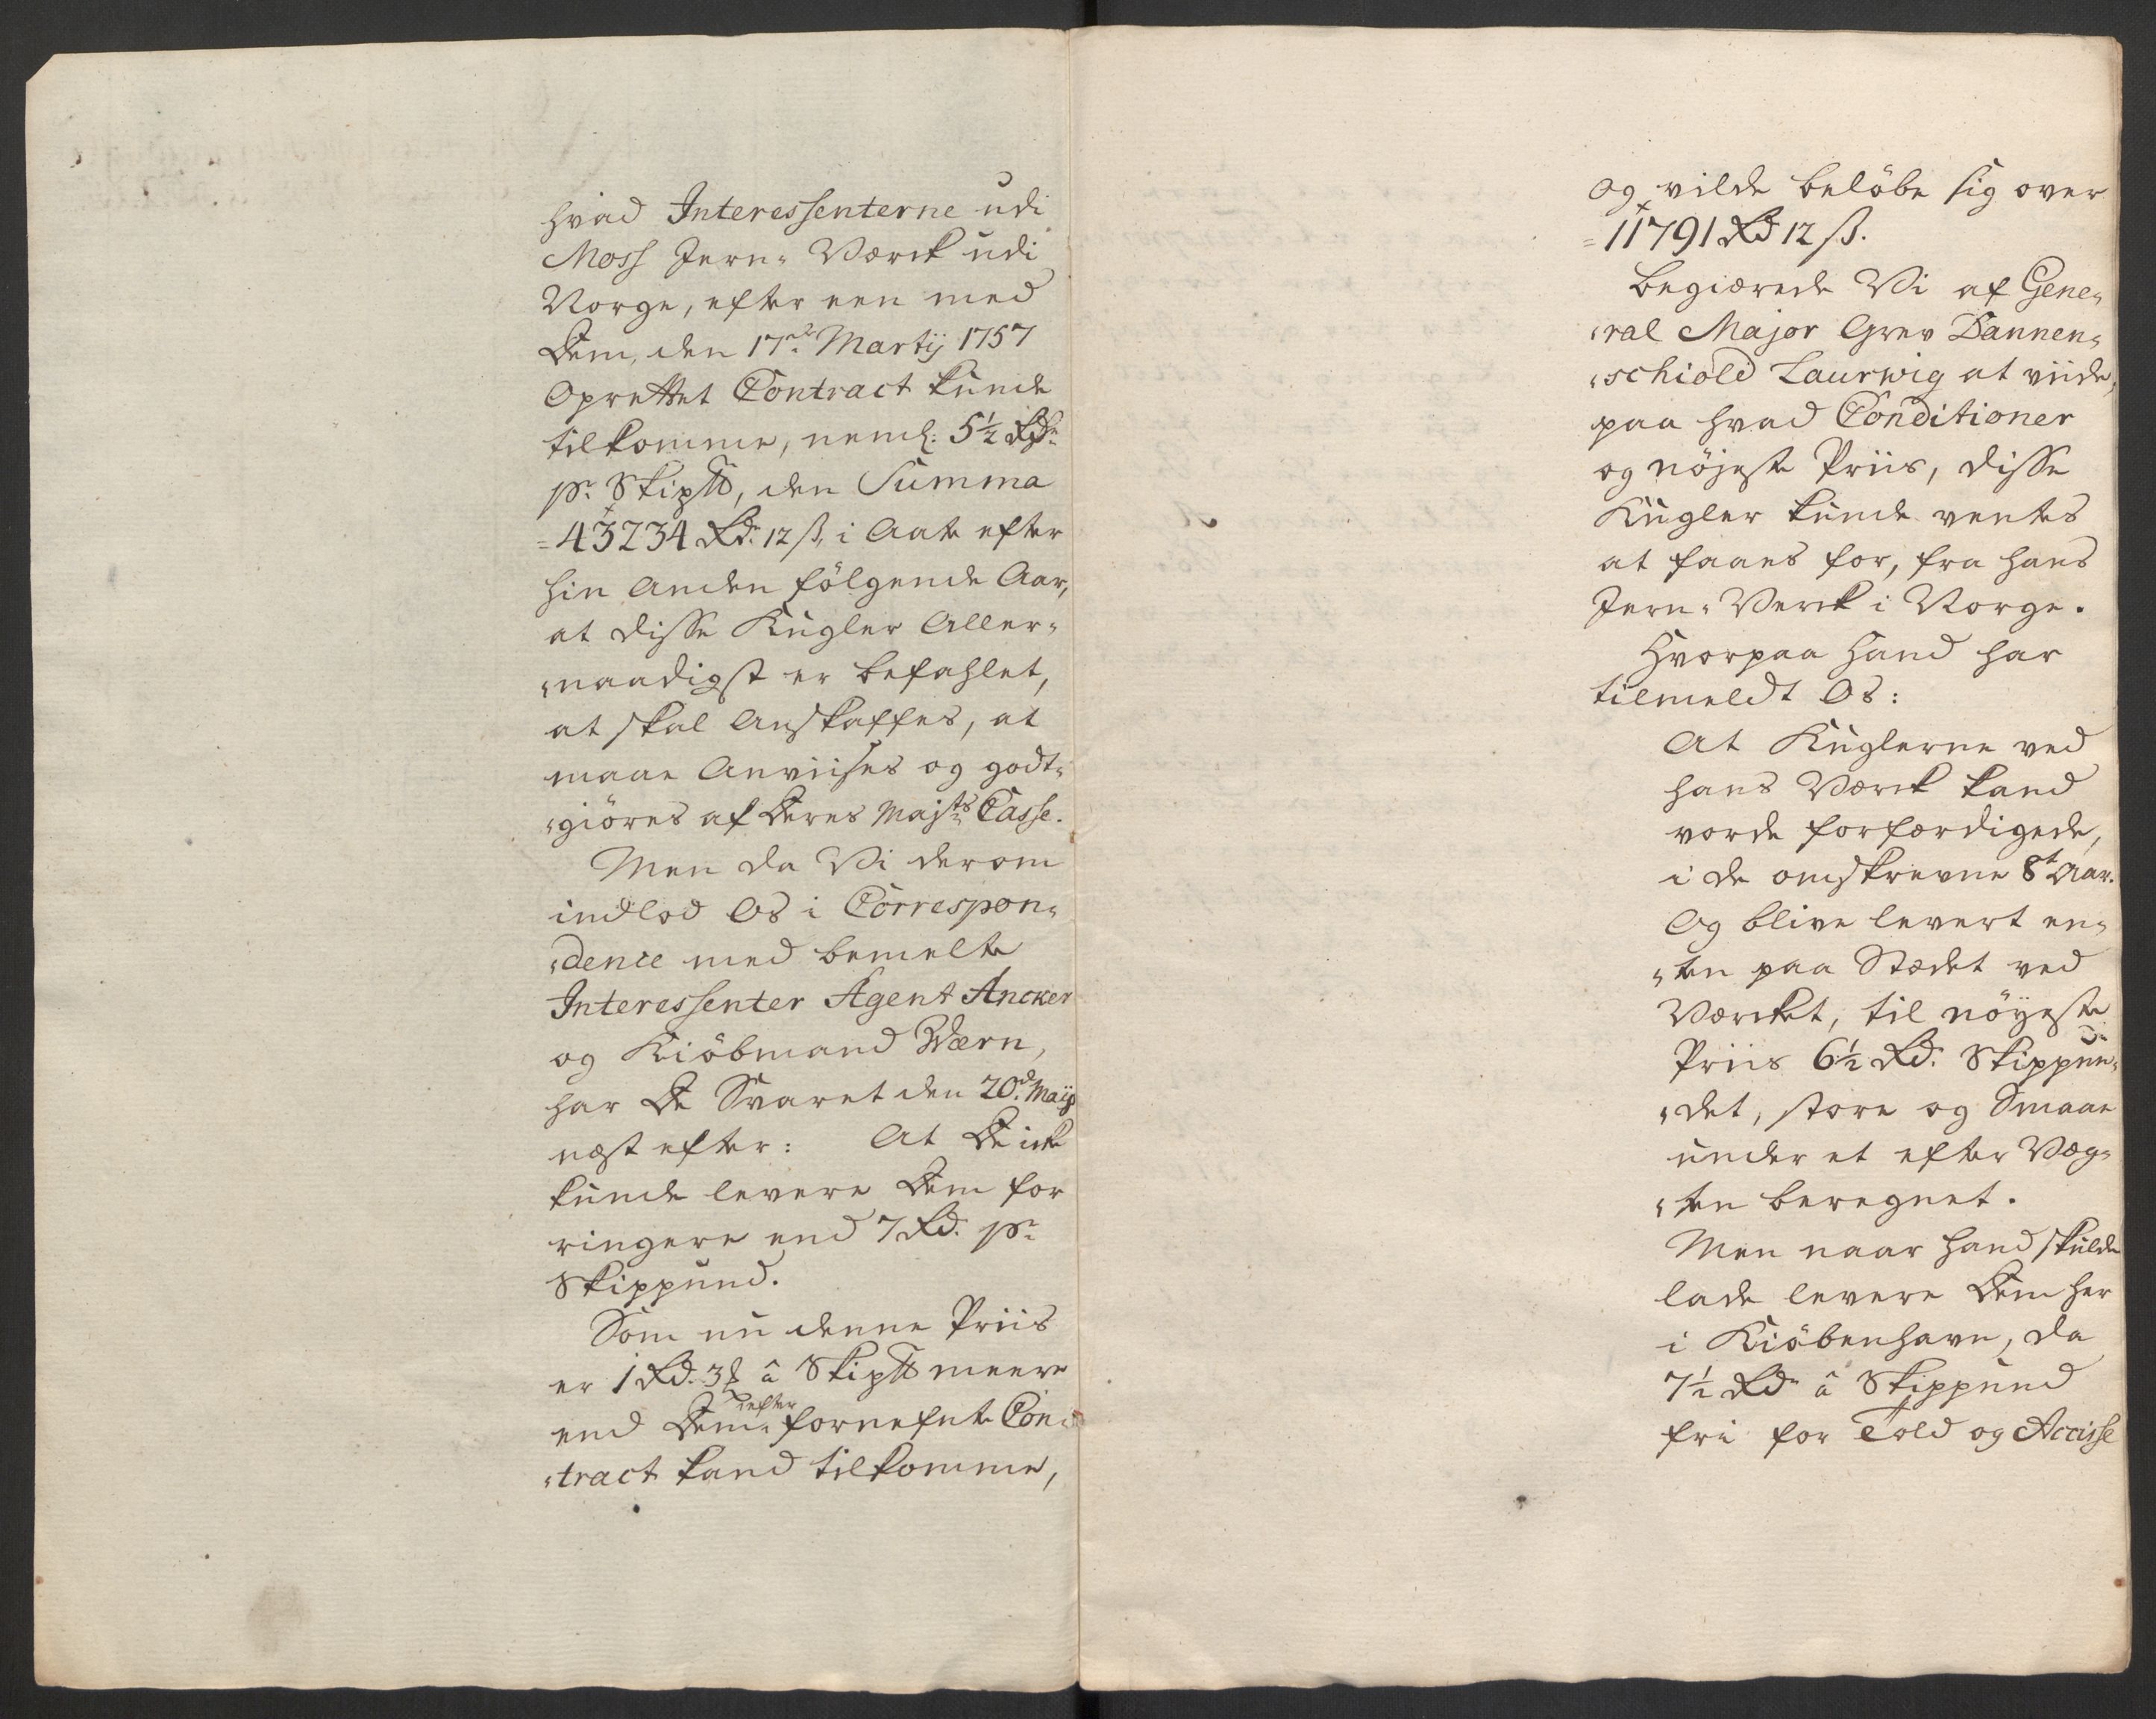 hvad Interessenterne udi
Moss Jern- Værck udi
Norge, efter een med
Dem, den 17de Martij 1757
Oprettet Contract kunde
tilkomme, neml: 5½ Rdr
pr Skip℔, den Summa
=43234 Rd. 12 ß, i Aate efter
hin Anden fölgende Aar,
at disse Kugler Aller-
naadigst er befahlet,
at skal Anskaffes, at
maae Anviises og godt-
giöres af Deres Majts Casse.
Men da Vi derom
indlod Os i Correspon-
dence med bemelte
Interessenter Agent Ancker
og Kiöbmand Wærn,
har De Svaret den 20d Maij
næst efter: At De icke
kunde levere Dem for
ringere end 7 Rd. pr
Skippund.
Som nu denne Priis
er 1 Rd. 3 â Skip℔ meere
end Dem efter fornefnte Con-
tract kand tilkomme,
og vilde belöbe sig over
=11791 Rd 12 ß.
Begiærede Vi af Gene-
ral Major Grev Dannen-
schiold Laurwig at viide,
paa hvad Conditioner
og nöjeste Priis, disse
Kugler kunde ventes
at faaes for, fra hans
Jern-Verck i Norge.
Hvorpaa Hand har
tilmeldt Os:
At Kuglerne ved
hans Værck kand
vorde forfærdigede,
i de omskrevne 8t Aar.
Og blive levert en-
ten paa Stædet ved
Værcket, til nöyeste
Priis 6½ Rd. Skippun-
det, store og Smaae
under et efter Væg-
ten beregnet.
Men naar Hand skulde
lade levere Dem her
i Kiöbenhavn, da
7½ Rdr â Skippund
fri for Told og Accisse